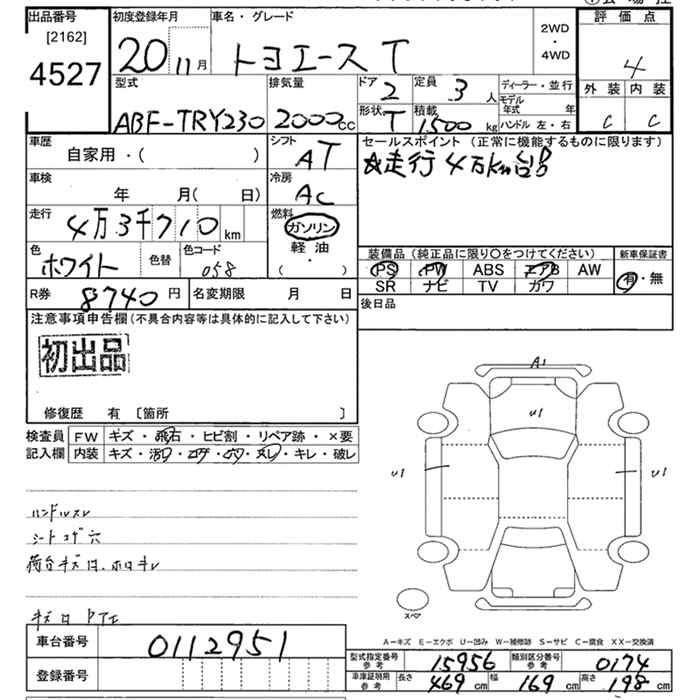 出品番号 初度登録年月 車名・グレード 評価点
[2162] 2WD
4527 20 11月 トヨエース T ・ 4
4WD
型式 排気量 ドア 2 定員 3人 ディーラー・並行 外装 内装
ABF-TRY230 2000cc 形状 T 積載 1,500kg モデル年式 年 C C
ハンドル 左・右
車歴 シフト セールスポイント (正常に機能するものに限ります)
自家用・( ) AT 走行4万km台
車検 冷房
年 月(日) AC
走行 燃料
4万3千710km ガソリン
色 色替 色コード 軽油 装備品 (純正品に限り○をつけてください) 新車保証書
ホワイト 058 (・) PS PW ABS エアB AW 有・無
R券 8740円 名変期限 月 日 SR ナビ TV カワ
注意事項申告欄(不具合内容等は具体的に記入して下さい) 後日品
初出品
修復歴 有 [箇所 ]
検査員 FW キズ・飛石・ヒビ割・リペア跡・×要
記入欄 内装 キズ・汚レ・コゲ・穴・スレ・キレ・破レ
A1
U1
U1 U1
ハンドルスレ
シートコゲ穴
スペア
A-キズ E-エクボ U-凹み W-補修跡 S-サビ C-腐食 XX-交換済
車台番号 0112951 型式指定番号 参考 15956 類別区分番号 参考 0174
登録番号 車庫証明用 参考 長さ 469cm 幅 169cm 高さ 198cm